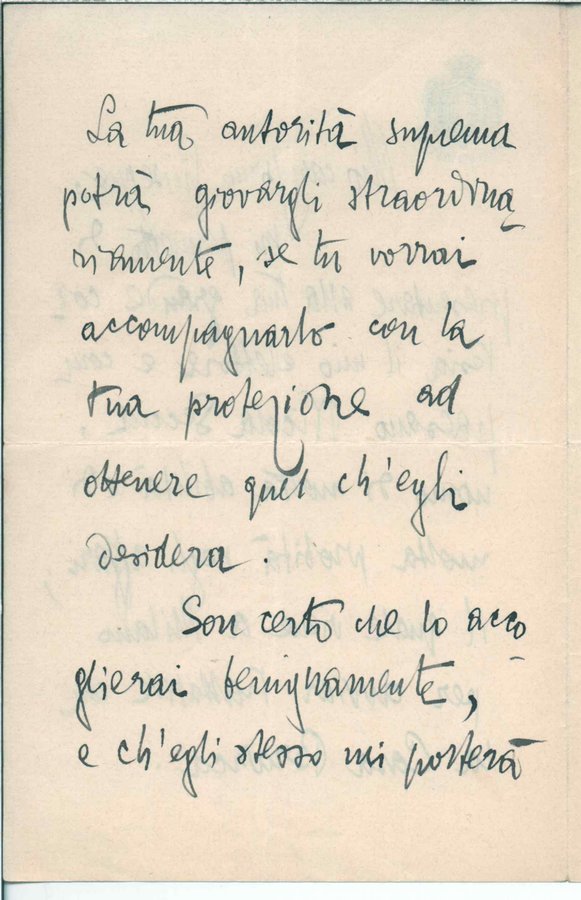 La tua autorità suprema
potrà giovargli straordina
riamente, se tu vorrai
accompagnarlo con la
tua protezione ad
ottenere quel ch'egli
desidera.
Son certo che lo acco
glierai benignamente,
e ch'egli stesso mi porterà